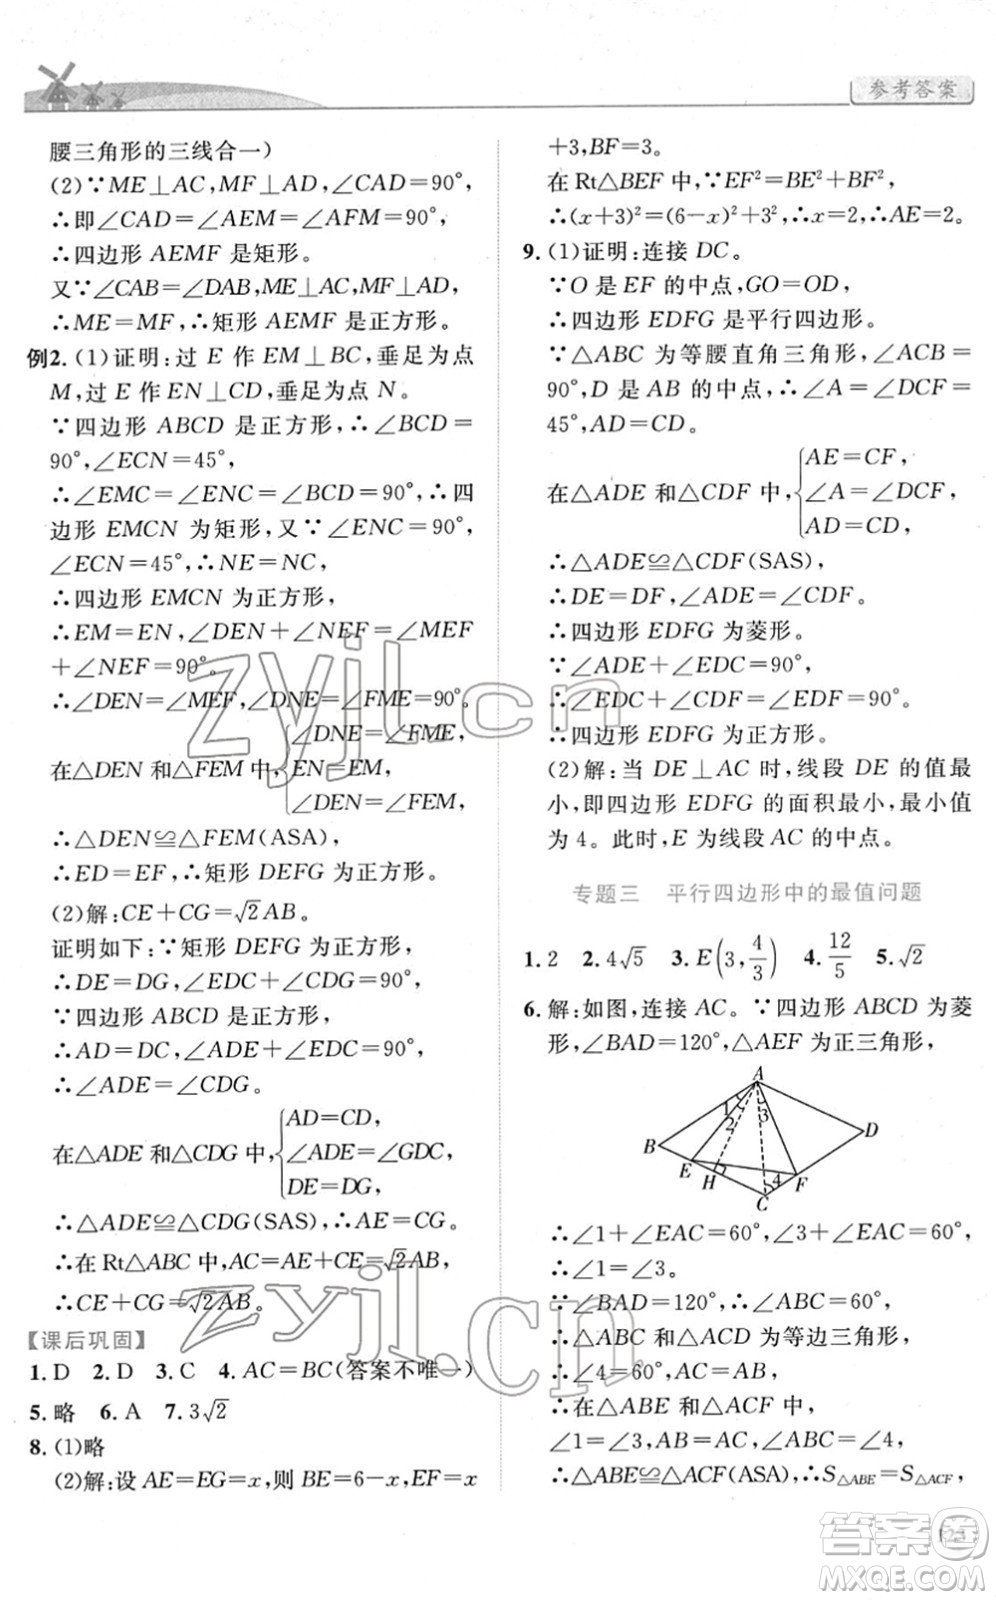 参考答案
腰三角形的三线合一)
(2)∵ME⊥AC,MF⊥AD,∠CAD=90°,
∴即∠CAD=∠AEM=∠AFM=90°,
∴四边形 AEMF 是矩形。
又∵∠CAB=∠DAB,ME⊥AC,MF⊥AD,
∴ME=MF,∴矩形 AEMF 是正方形。
例2. (1)证明:过 E 作 EM⊥BC,垂足为点
M,过 E 作 EN⊥CD,垂足为点 N。
∵四边形 ABCD 是正方形,∴∠BCD=
90°,∠ECN=45°,
∴∠EMC=∠ENC=∠BCD=90°,∴四
边形 EMCN 为矩形,又∵∠ENC=90°,
∠ECN=45°,∴NE=NC,
∴四边形 EMCN 为正方形,
∴EM=EN,∠DEN+∠NEF=∠MEF
+∠NEF=90°。
∴∠DEN=∠MEF,∠DNE=∠FME=90°。
在△DEN和△FEM 中,{∠DNE=∠FME, EN=EM, ∠DEN=∠FEM,
∴△DEN≌△FEM(ASA),
∴ED=EF,∴矩形 DEFG 为正方形。
(2)解:CE+CG=√2AB。
证明如下:∵矩形 DEFG 为正方形,
∴DE=DG,∠EDC+∠CDG=90°,
∵四边形 ABCD 是正方形,
∴AD=DC,∠ADE+∠EDC=90°,
∴∠ADE=∠CDG。
在△ADE 和△CDG 中,{AD=CD, ∠ADE=∠CDG, DE=DG,
∴△ADE≌△CDG(SAS),∴AE=CG。
∴在 Rt△ABC 中,AC=AE+CE=√2AB,
∴CE+CG=√2AB。
【课后巩固】
1. D 2. D 3. C 4. AC=BC(答案不唯一)
5. 略 6. A 7. 3√2
8. (1)略
(2)解:设 AE=EG=x,则 BE=6-x,EF=x
+3,BF=3。
在 Rt△BEF 中,∵EF²=BE²+BF²,
∴(x+3)²=(6-x)²+3²,∴x=2,∴AE=2。
9. (1)证明:连接 DC。
∵O 是 EF 的中点,GO=OD,
∴四边形 EDFG 是平行四边形,
∵△ABC 为等腰直角三角形,∠ACB=
90°,D 是 AB 的中点,∴∠A=∠DCF=
45°,AD=CD。
在△ADE 和△CDF 中,{AE=CF, ∠A=∠DCF, AD=CD,
∴△ADE≌△CDF(SAS),
∴DE=DF,∠ADE=∠CDF。
∴四边形 EDFG 为菱形。
∵∠ADE+∠EDC=90°,
∴∠EDC+∠CDF=∠EDF=90°。
∴四边形 EDFG 为正方形。
(2)解:当 DE⊥AC 时,线段 DE 的值最
小,即四边形 EDFG 的面积最小,最小值
为 4。此时,E 为线段 AC 的中点。
专题三 平行四边形中的最值问题
1. 2 2. 4√5 3. E(3, 4/3) 4. 12/5 5. √2
6. 解:如图,连接 AC。∵四边形 ABCD 为菱
形,∠BAD=120°,△AEF 为正三角形,
A
1
2
3
B
D
E
H
4
F
C
∴∠1+∠EAC=60°,∠3+∠EAC=60°,
∴∠1=∠3。
∵∠BAD=120°,∴∠ABC=60°,
∴△ABC 和△ACD 为等边三角形,
∴∠4=60°,AC=AB。
∴在△ABE 和△ACF 中,
∠1=∠3,AB=AC,∠ABC=∠4,
∴△ABE≌△ACF(ASA),∴S△ABE=S△ACF,
zyjl.cn
zyjl.cn
答案圈
MXQE.COM